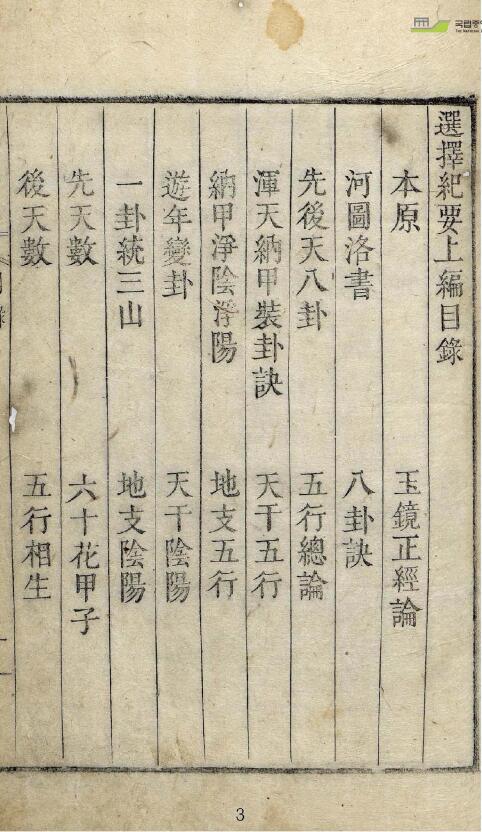 選擇紀要上編目錄
本原 玉鏡正經論
河圖洛書 八卦訣
先後天八卦 五行總論
渾天納甲裝卦訣 天干五行
納甲淨陰淨陽 地支五行
遊年變卦 天干陰陽
一卦統三山 地支陰陽
先天數 六十花甲子
後天數 五行相生
3